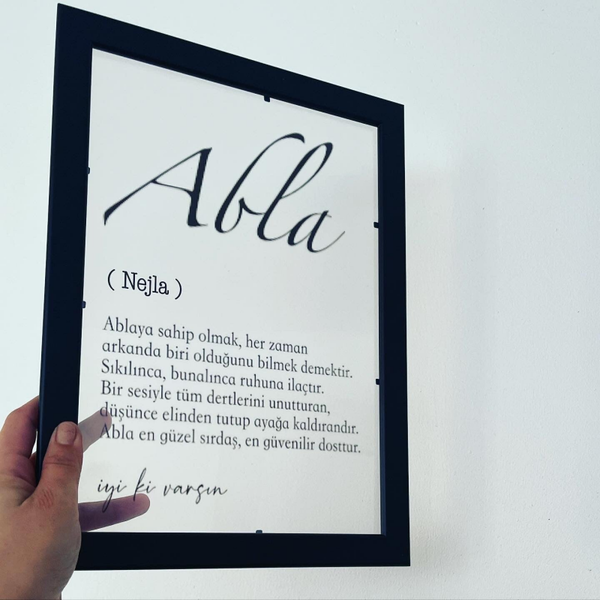 Abla
( Nejla )
Ablaya sahip olmak, her zaman
arkanda biri olduğunu bilmek demektir.
Sıkılınca, bunalınca ruhuna ilaçtır.
Bir sesiyle tüm dertlerini unutturan,
düşünce elinden tutup ayağa kaldırandır.
Abla en güzel sırdaş, en güvenilir dosttur.
iyi ki varsın